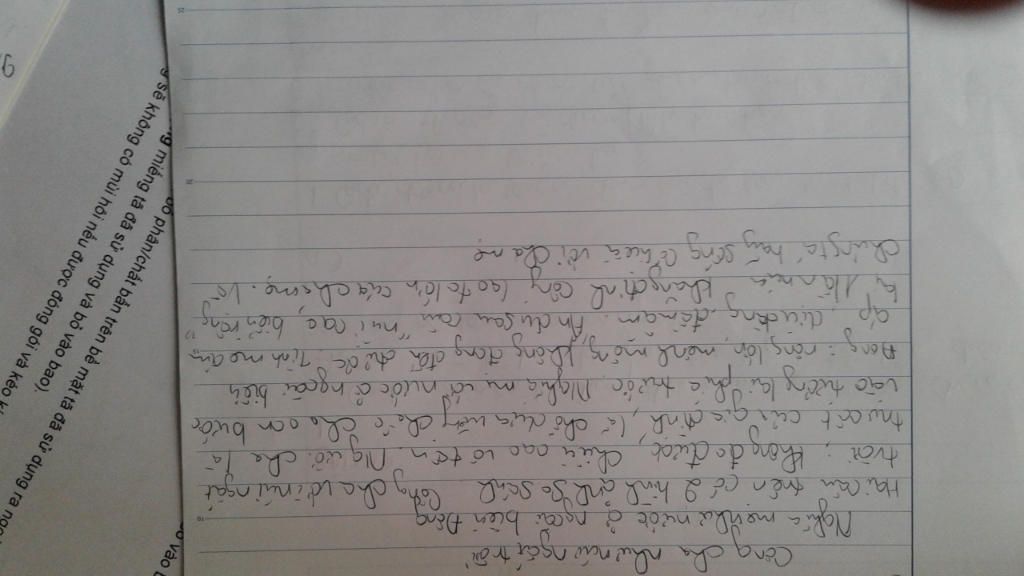 Công cha như núi ngất trời
Nghĩa mẹ như nước ở ngoài biển Đông
Hai câu trên có 2 hình ảnh so sánh. Công cha với núi ngất
trời: không đo được, chiều cao vô tận. Người cha là
trụ cột của gia đình, là chỗ dựa vững chắc cho con bước
vào tương lai phía trước. Nghĩa mẹ với nước ở ngoài biển
Đông: rộng lớn, mênh mông, không đong đếm Tình mẹ ấm
áp, dịu dàng, Ẩn dụ sau câu "núi cao, biển rộng
khẳng định công lao to lớn của cha mẹ. Vì
chúng ta hãy sống có hiếu với cha mẹ
g miếng tã đã sử dụng và bỏ vào bao).
phân/chất bẩn trên bề mặt tã đã sử dụng ra ngoà
g sẽ không có mùi hôi nếu được đóng gói và kéo k